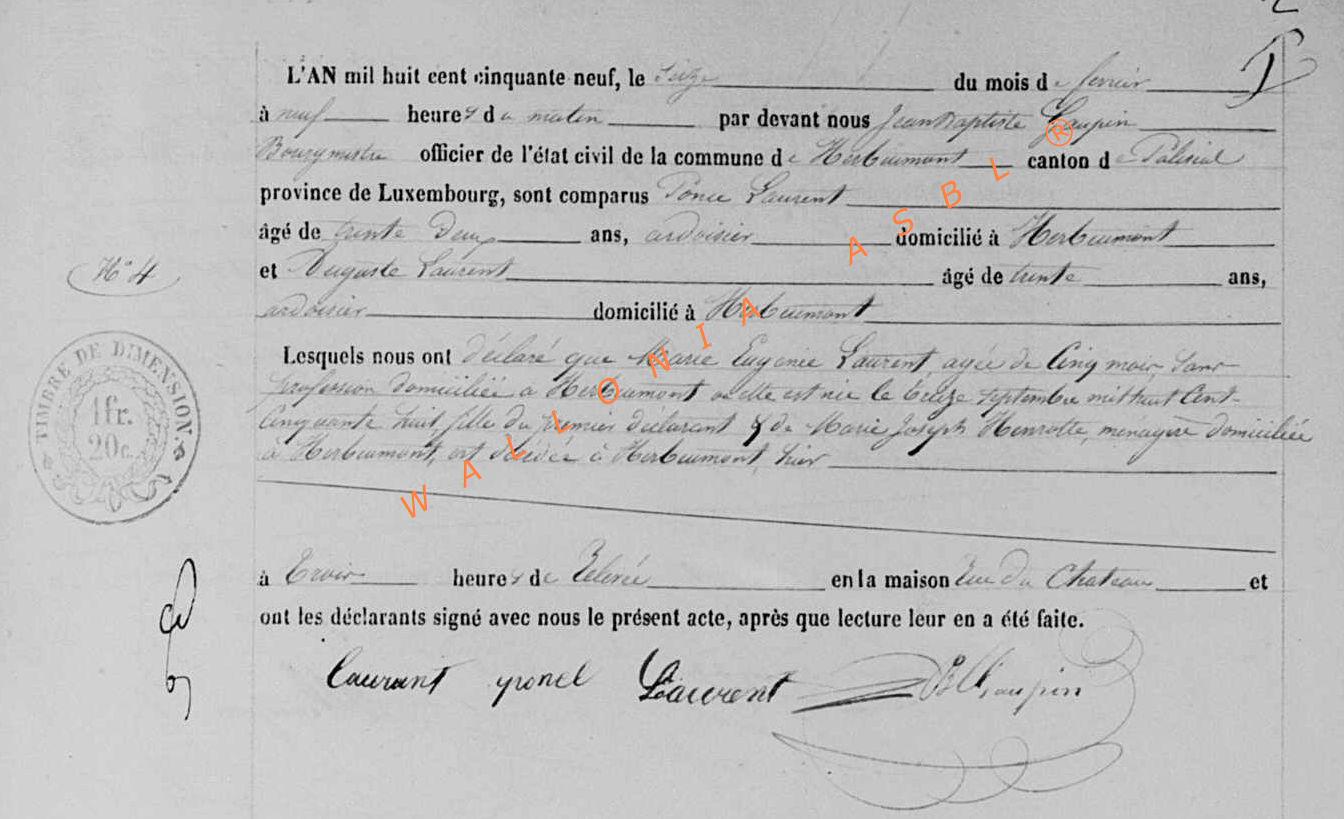 L'AN mil huit cent cinquante neuf, le seize du mois de fevrier
à neuf heures du matin par devant nous Jean Baptiste
Bourgmestre officier de l'état civil de la commune de Herbeumont canton de Paliseul
province de Luxembourg, sont comparus Ponce Laurent
âgé de trente deux ans, ardoisier domicilié à Herbeumont
et Auguste Laurent âgé de trente ans,
ardoisier domicilié à Herbeumont
N° 4
Lesquels nous ont déclaré que Marie Eugenie Laurent, agée de Cinq mois, sans
profession domiciliée a Herbeumont où elle est née le treize septembre mil huit Cent
Cinquante huit, fille du premier déclarant & de Marie Joseph Henrotte, menagere domiciliée
à Herbeumont, est décédée à Herbeumont, hier
TIMBRE DE DIMENSION.
1 fr.
20 c.
à trois heures de Relevée en la maison Rue du Chateau et
ont les déclarants signé avec nous le présent acte, après que lecture leur en a été faite.
Laurant Laurent
WALLONIA ASBL ®